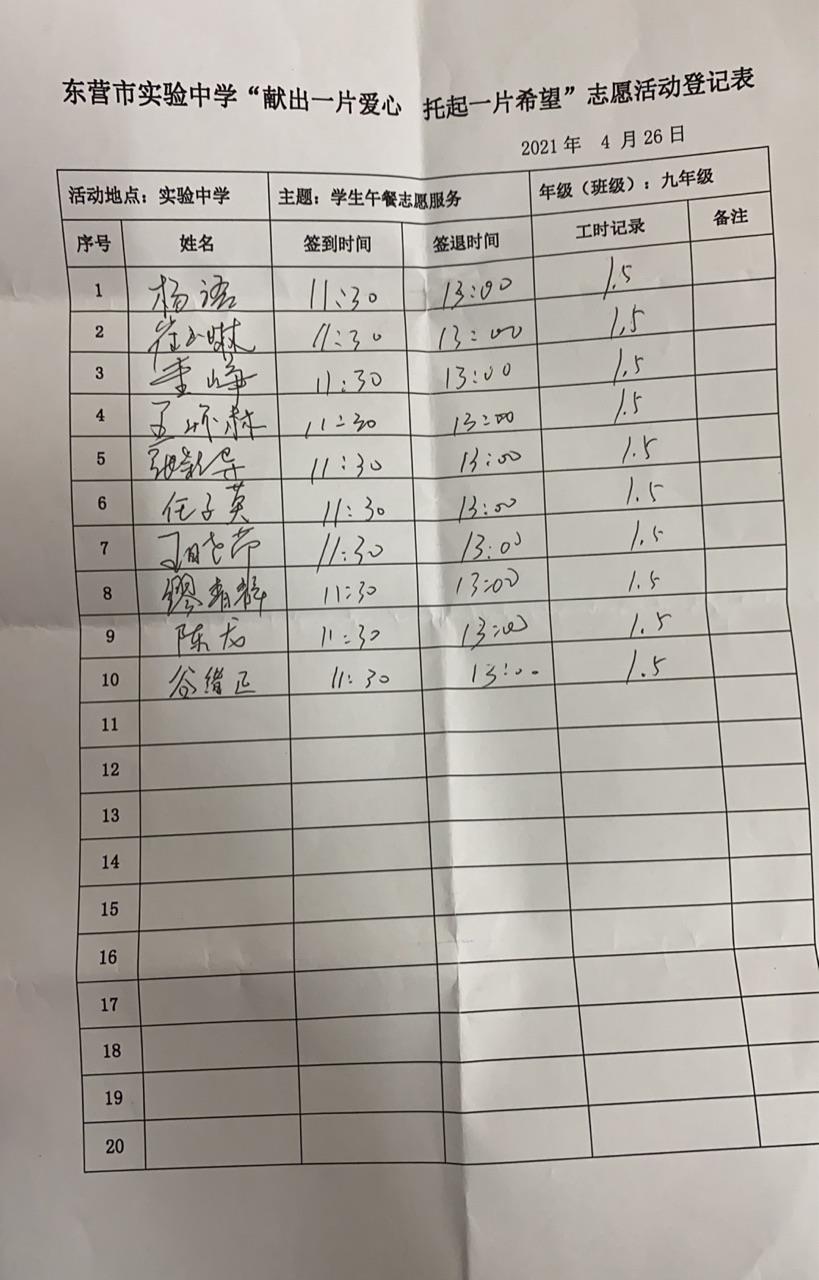 东营市实验中学“献出一片爱心 托起一片希望”志愿活动登记表
2021年 4月26日
活动地点：实验中学 主题：学生午餐志愿服务 年级（班级）：九年级
序号 姓名 签到时间 签退时间 工时记录 备注
1 杨语 11:30 13:00 1.5
2 11:30 13:00 1.5
3 董峰 11:30 13:00 1.5
4 11:30 13:00 1.5
5 11:30 13:00 1.5
6 任子英 11:30 13:00 1.5
7 11:30 13:00 1.5
8 11:30 13:00 1.5
9 陈龙 11:30 13:00 1.5
10 谷绪正 11:30 13:00 1.5
11
12
13
14
15
16
17
18
19
20